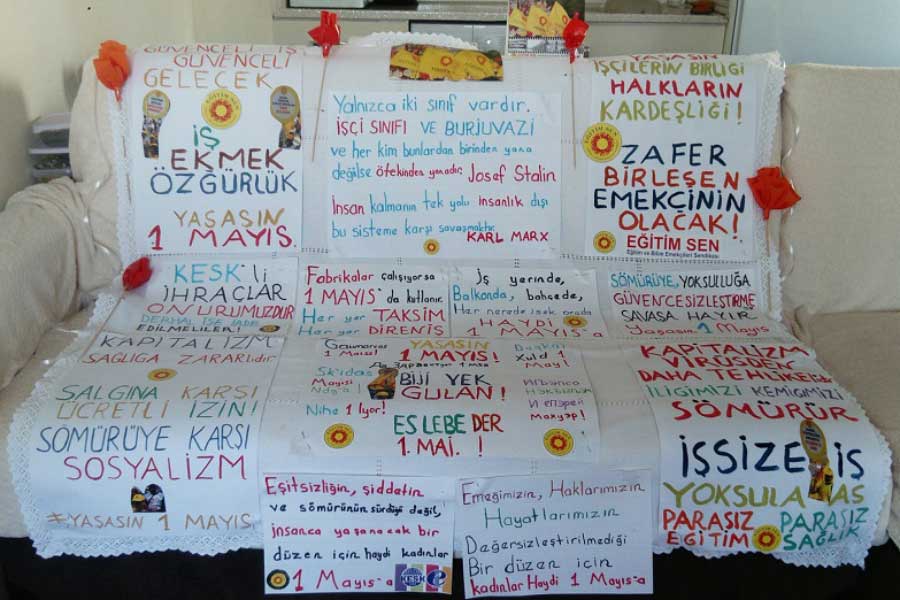 GÜVENCELİ İŞ
GÜVENCELİ
GELECEK
EĞİTİM SEN
İŞ
EKMEK
ÖZGÜRLÜK
YAŞASIN
1 MAYIS.
Yalnızca iki sınıf vardır.
İŞÇİ SINIFI VE BURJUVAZİ
ve her kim bunlardan birinden yana
değilse ötekinden yanadır. Josef Stalin
İnsan kalmanın tek yolu insanlık dışı
bu sisteme karşı savaşmaktır.
KARL MARX
YAŞASIN
İŞÇİLERİN BİRLİĞİ
HALKLARIN
KARDEŞLİĞİ!
EĞİTİM SEN
ZAFER
BİRLEŞEN
EMEKÇİNİN
OLACAK!
EĞİTİM SEN
Eğitim ve Bilim Emekçileri Sendikası
KESK'li
İHRAÇLAR
ONURUMUZDUR
DERHAL İŞE İADE
EDİLMELİLER!
Fabrikalar çalışıyorsa
1 MAYIS' da kutlanır.
Her yer TAKSİM
Her yer DİRENİŞ
İş yerinde,
Balkonda, bahçede,
Her nerede isek orada
HAYDİ
1 MAYIS-a
SÖMÜRÜYE, YOKSULLUĞA
GÜVENCESİZLEŞTİRME
SAVAŞA HAYIR
Yaşasın 1 Mayıs
KAPİTALİZM
SAĞLIĞA ZARARLIdır
SALGINA KARŞI
ÜCRETLİ İZİN!
SÖMÜRÜYE KARŞI
SOSYALİZM
#YAŞASIN 1 MAYIS
YAŞASIN
1 MAYIS!
BIJİ YEK
GULAN!
ES LEBE DER
1. MAI. !
Sk'idas
Mayisi
1 May!
KAPİTALİZM
VİRÜSDEN
DAHA TEHLİKELİ
İLİĞİMİZİ KEMİĞİMİZİ
SÖMÜRÜR
İŞSİZE İŞ
YOKSULA AŞ
PARASIZ
EĞİTİM
PARASIZ
SAĞLIK
Eşitsizliğin, şiddetin
ve sömürünün sürdüğü değil,
insanca yaşanacak bir
düzen için haydi kadınlar
1 Mayıs-a
KESK
Emeğimizin, Haklarımızın
Hayatlarımızın
Değersizleştirilmediği
Bir düzen için
kadınlar Haydi 1 Mayıs-a